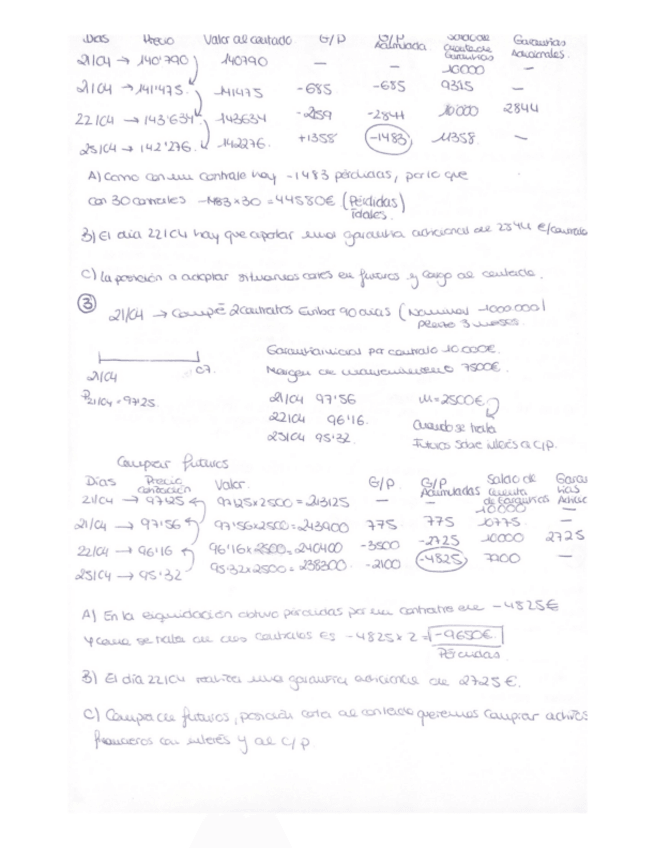 Días Precio Valor al contado G/P G/P Acumulada Saldo de cuenta de garantías Garantías Adicionales.
21/04 → 140'790 140790 — — 10000 —
21/04 → 141'475 141475 -685 -685 9315 —
22/04 → 143'634 143634 -2159 -2844 10000 2844
25/04 → 142'276 142276 +1358 -1483 11358 —
A) Como con un contrato hay -1483 pérdidas, por lo que
con 30 contratos -1483 x 30 = 44580€ (Pérdidas totales.)
B) El día 22/04 hay que aportar una garantía adicional de 2844 €/contrato
C) La posición a adoptar en futuros y al contado.
③
21/04 → Compré 2 contratos Euribor 90 días (Nominal 1000.000)
plazo 3 meses.
Garantía inicial por contrato 10000€.
21/04 C7.
Margen de mantenimiento 7500€.
P21/04 = 97'25.
21/04 97'56 M = 2500€
22/04 96'16. Cuando se trata
25/04 95'32. Futuros sobre interés a C/P.
Comprar futuros
Días Precio cotización Valor. G/P G/P Acumuladas Saldo de cuenta de garantías Garantías Adic
21/04 → 97'25 97'25x2500 = 243125 — — 10000 —
21/04 → 97'56 97'56x2500 = 243900 775 775 10775 —
22/04 → 96'16 96'16x2500 = 240400 -3500 -2725 10000 2725
25/04 → 95'32 95'32x2500 = 238300 -2100 -4825 7900 —
A) En la liquidación obtuvo pérdidas por un contrato de -4825€
y como se trata de dos contratos es -4825 x 2 = -9650€
Pérdidas.
B) El día 22/04 realiza una garantía adicional de 2725€.
C) Compra de futuros, posición corta al contado queremos comprar activos
financieros con interés y al C/P